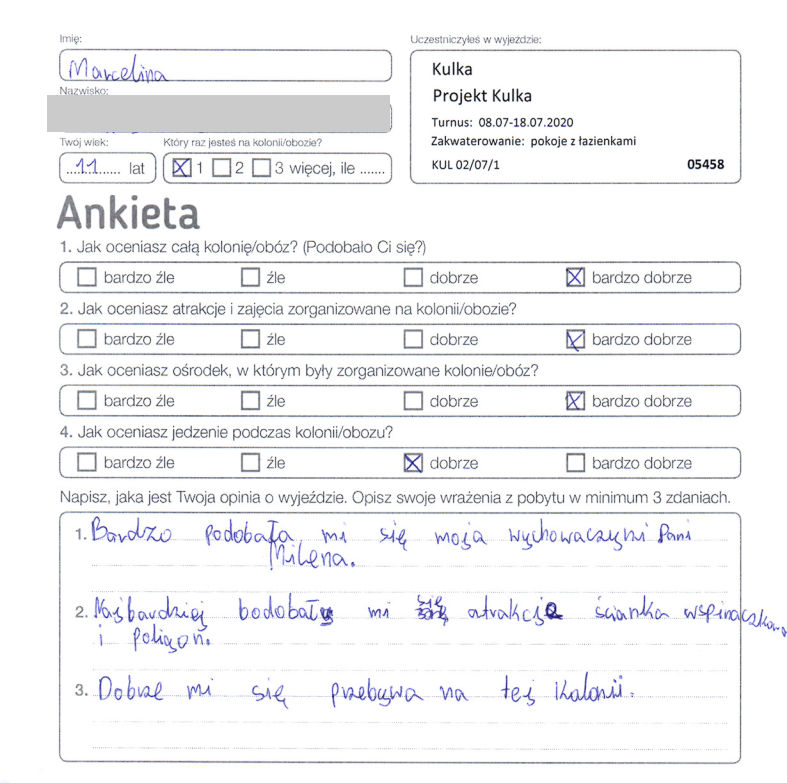 Imię:
Marcelina
Uczestniczyłeś w wyjeździe:
Kulka
Projekt Kulka
Turnus: 08.07-18.07.2020
Zakwaterowanie: pokoje z łazienkami
KUL 02/07/1 05458
Nazwisko:
Twój wiek:
11 lat
Który raz jesteś na kolonii/obozie?
1 2 3 więcej, ile .......
Ankieta
1. Jak oceniasz całą kolonię/obóz? (Podobało Ci się?)
bardzo źle źle dobrze bardzo dobrze
2. Jak oceniasz atrakcje i zajęcia zorganizowane na kolonii/obozie?
bardzo źle źle dobrze bardzo dobrze
3. Jak oceniasz ośrodek, w którym były zorganizowane kolonie/obóz?
bardzo źle źle dobrze bardzo dobrze
4. Jak oceniasz jedzenie podczas kolonii/obozu?
bardzo źle źle dobrze bardzo dobrze
Napisz, jaka jest Twoja opinia o wyjeździe. Opisz swoje wrażenia z pobytu w minimum 3 zdaniach.
1. Bardzo podobała mi się moja wychowaczyni Pani
Milena.
2. Najbardziej bodobały mi się atrakcje ścianka wspinaczkowa
i poligon.
3. Dobrze mi się przebywa na tej Kolonii.